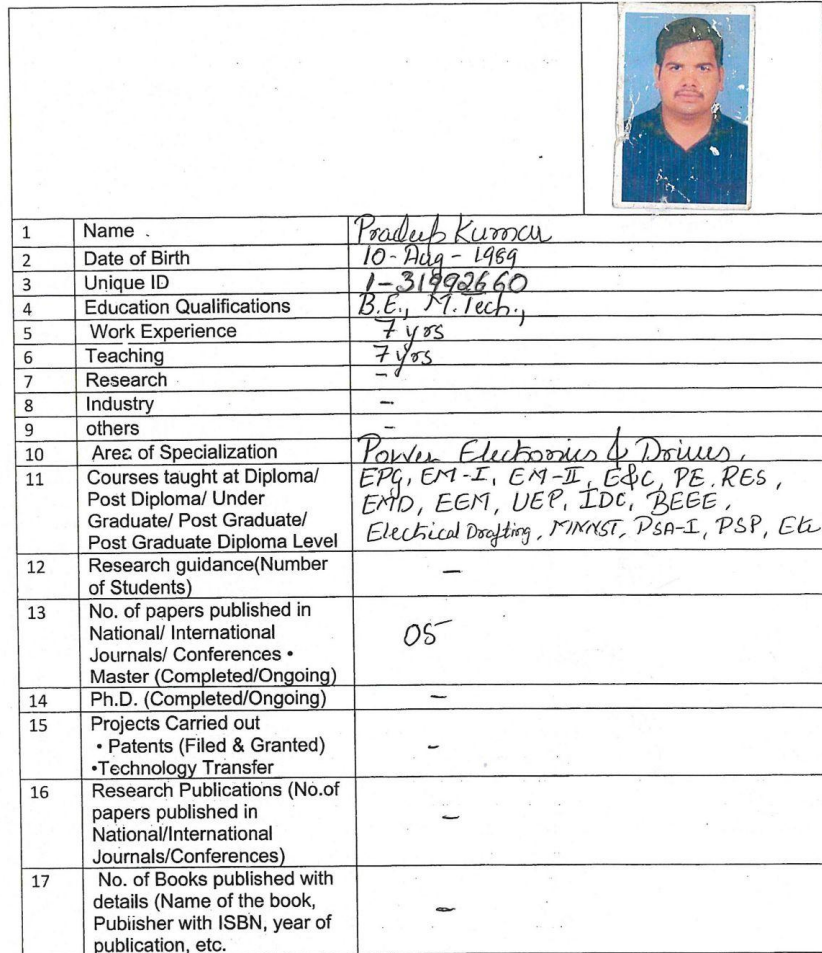 1 Name Pradeep Kumar
2 Date of Birth 10-Aug-1989
3 Unique ID 1-31992660
4 Education Qualifications B.E., M.Tech.,
5 Work Experience 7 yrs
6 Teaching 7 yrs
7 Research -
8 Industry -
9 others -
10 Area of Specialization Power Electronics & Drives,
11 Courses taught at Diploma/ EPG, EM-I, EM-II, E&C, PE, RES,
Post Diploma/ Under EMD, EEM, UEP, IDC, BEEE,
Graduate/ Post Graduate/ Electrical Drafting, PSA-I, PSP, Etc
Post Graduate Diploma Level
12 Research guidance(Number -
of Students)
13 No. of papers published in
National/ International 05
Journals/ Conferences •
Master (Completed/Ongoing)
14 Ph.D. (Completed/Ongoing) -
15 Projects Carried out
• Patents (Filed & Granted) -
•Technology Transfer
16 Research Publications (No.of
papers published in -
National/International
Journals/Conferences)
17 No. of Books published with
details (Name of the book, -
Publisher with ISBN, year of
publication, etc.